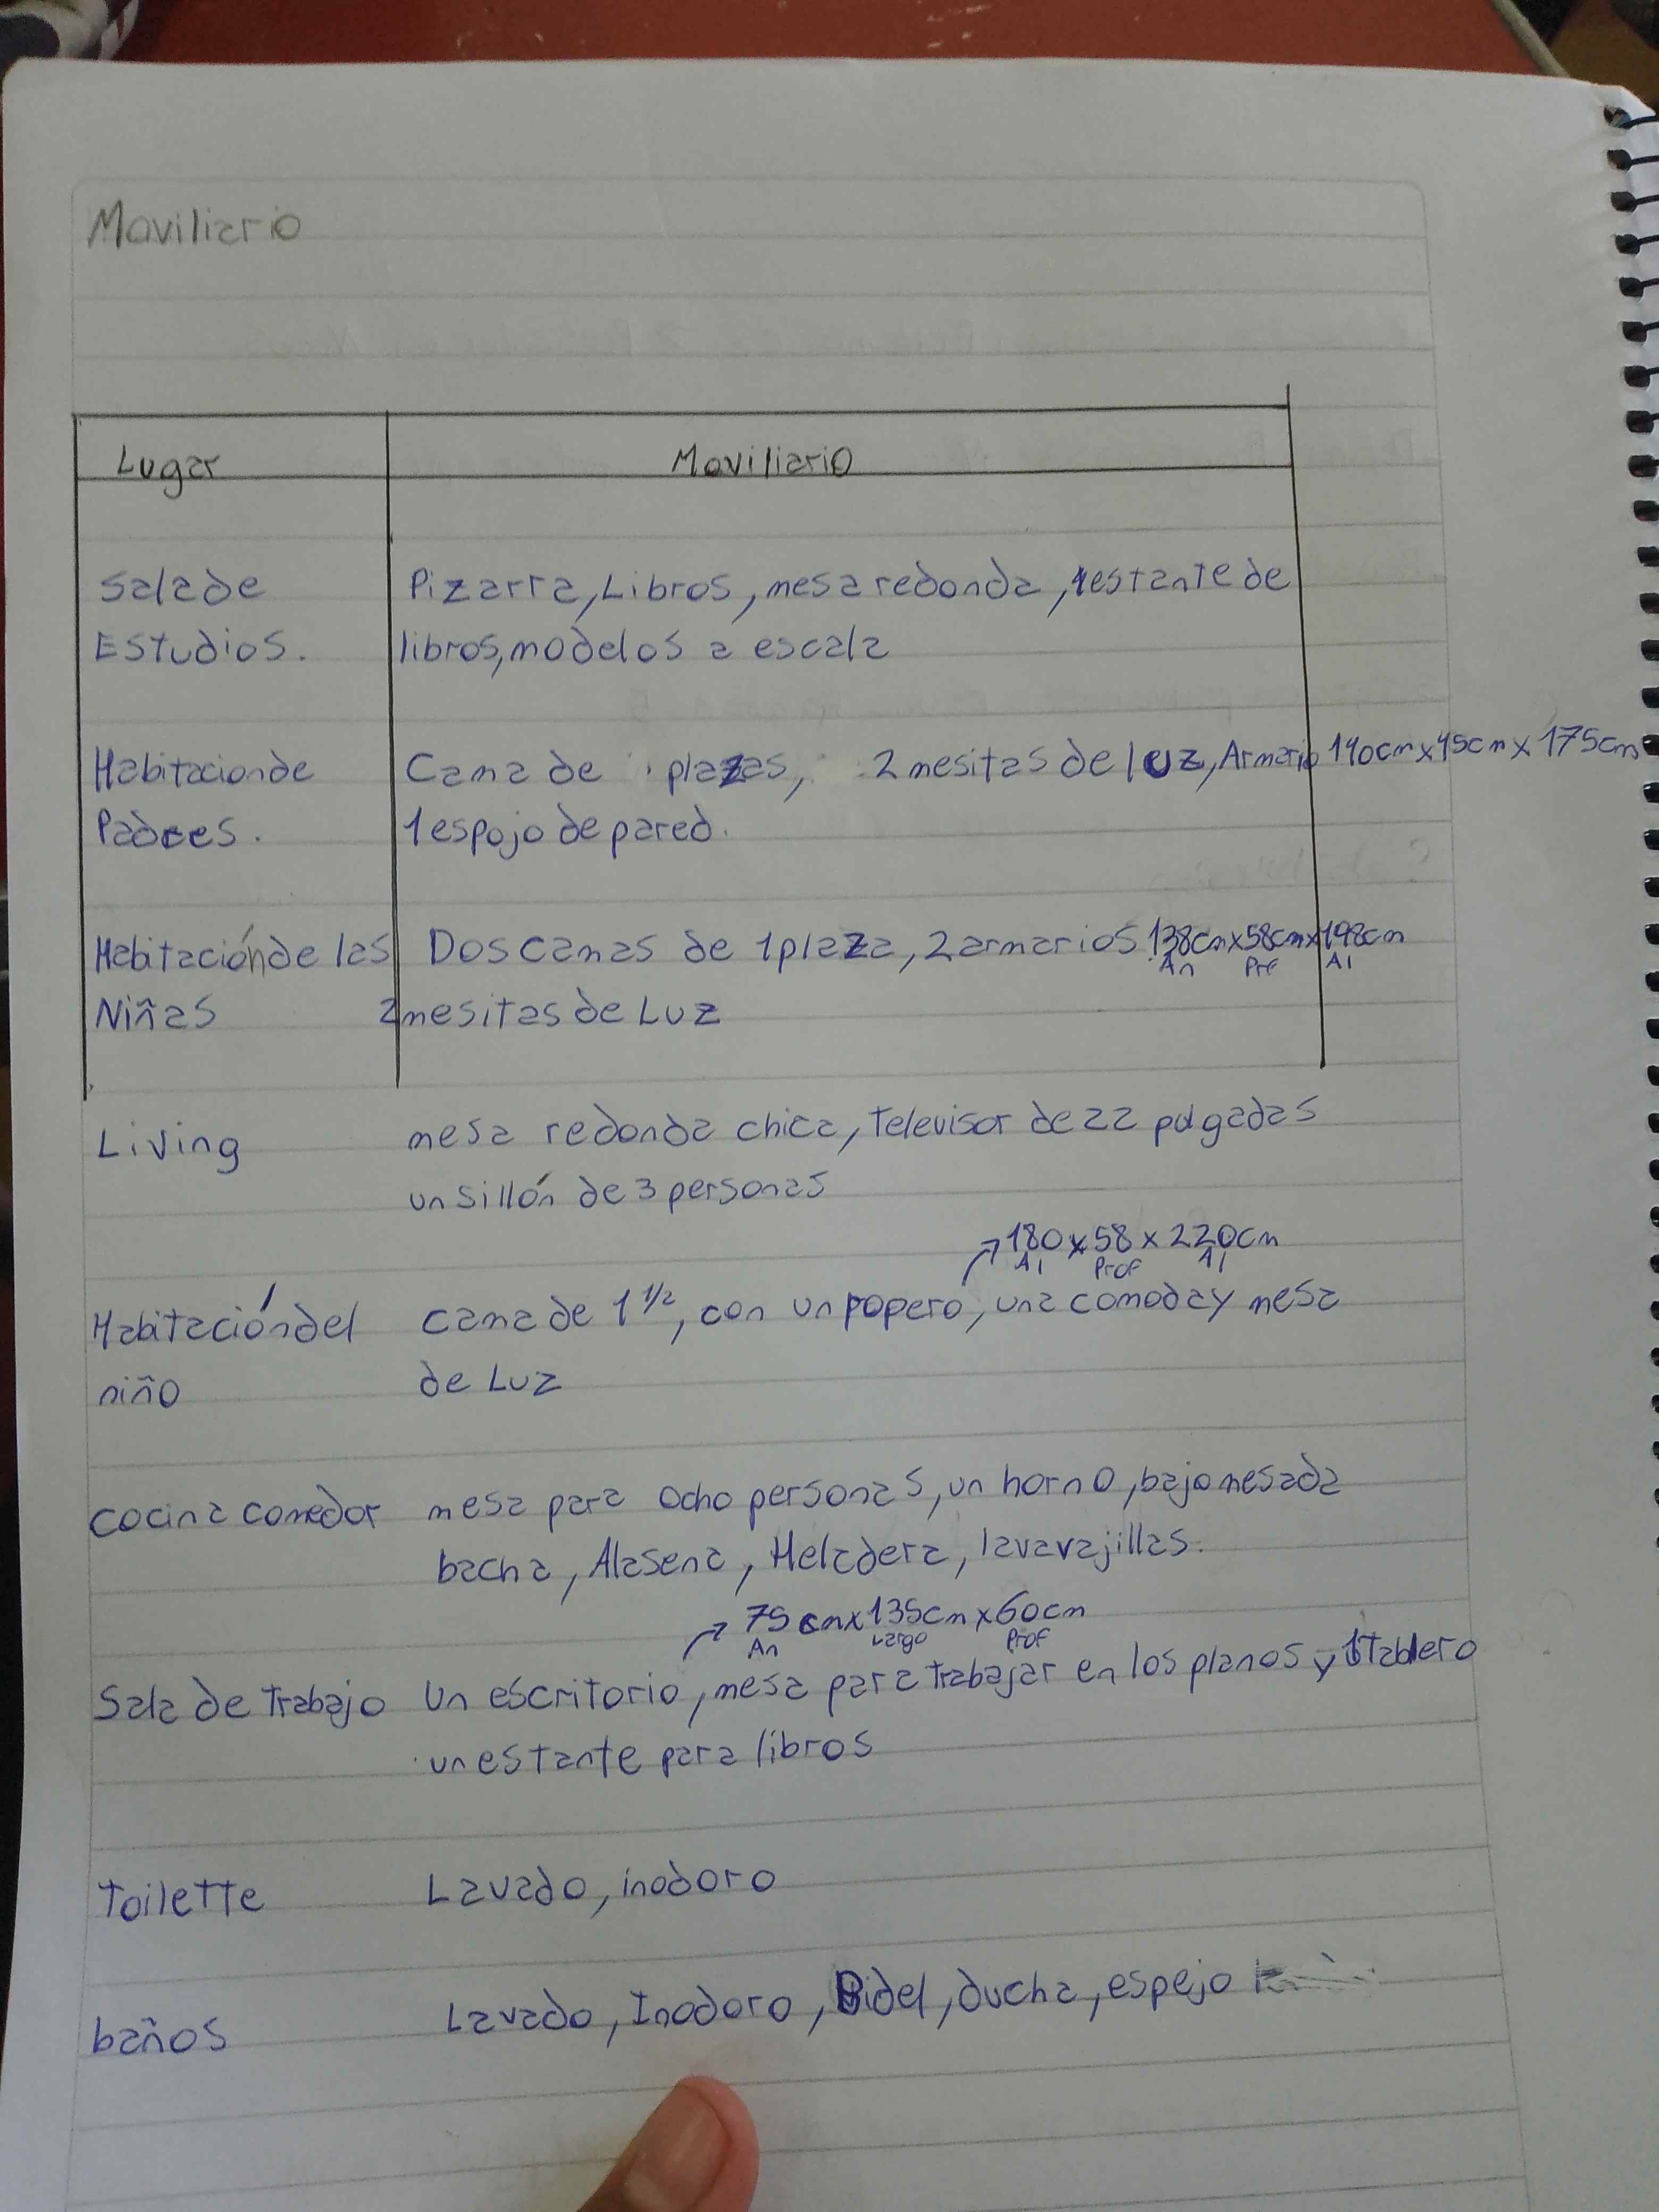 Moviliario
Lugar Moviliario
Sala de Pizarra, Libros, mesa redonda, estante de
Estudios. libros, modelos a escala
Habitacion de Cama de plazas, 2 mesitas de luz, Armario 140cm x 45cm x 175cm
Padres. 1 espojo de pared.
Habitación de las Dos camas de 1 plaza, 2 armarios 138cm x 58cm x 198cm
An Prf Al
Niñas 2 mesitas de Luz
Living mesa redonda chica, Televisor de 22 pulgadas
un sillón de 3 personas
180 x 58 x 220cm
Al Prof Al
Habitación del cama de 1 1/2, con un popero, una comoda y mesa
niño de Luz
cocina comedor mesa para ocho personas, un horno, bajo mesada
bacha, Alasena, Heladera, lavavajillas.
75 cm x 135cm x 60cm
An Largo Prof
Sala de Trabajo Un escritorio, mesa para trabajar en los planos y 1 tablero
un estante para libros
Toilette Lavado, inodoro
baños Lavado, Inodoro, Bidel, ducha, espejo